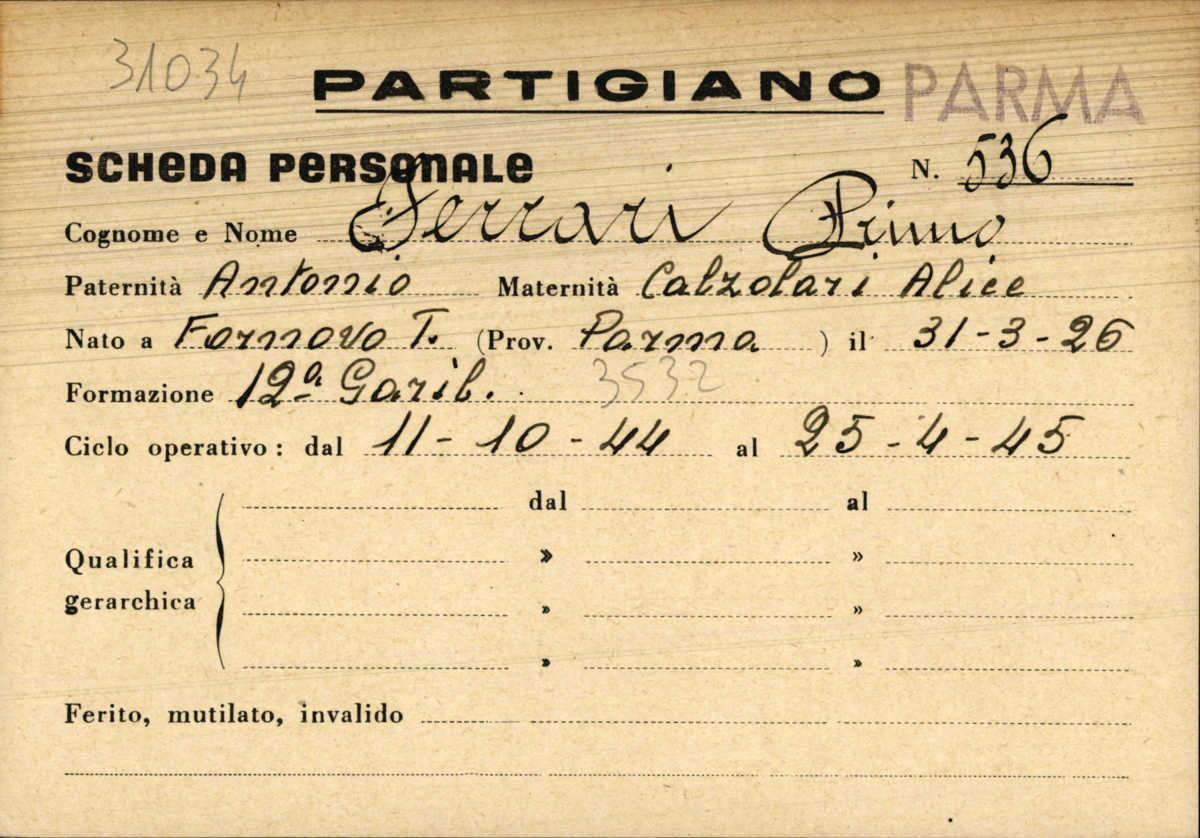 31034
PARTIGIANO PARMA
SCHEDA PERSONALE N. 536
Cognome e Nome Ferrari Primo
Paternità Antonio Maternità Calzolari Alice
Nato a Fornovo T. (Prov. Parma ) il 31-3-26
Formazione 12ª Garib. 3532
Ciclo operativo: dal 11-10-44 al 25-4-45
dal al
Qualifica » »
gerarchica » »
» »
Ferito, mutilato, invalido